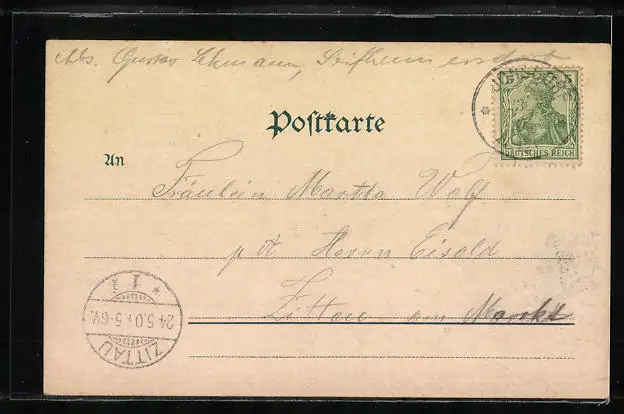 Abs. Gustav Lehmann, Seifhennersdorf
5 5
DEUTSCHES REICH
Postkarte
An
Fräulein Martha Wolf
p. A. Herrn Eisold
Zittau am Markt
* 1 i
24.5.01 5-6V.
ZITTAU